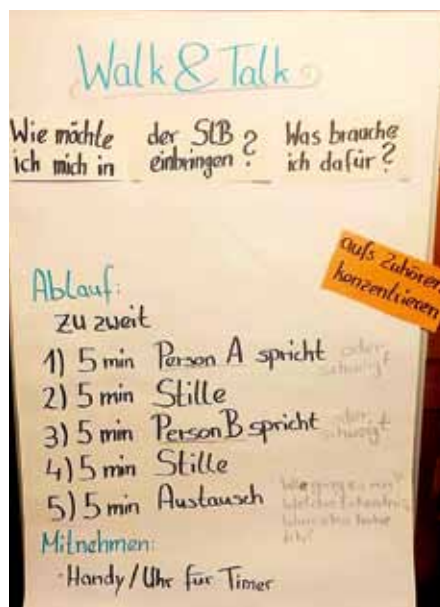 Walk & Talk
Wie möchte ich mich in
der SLB einbringen?
Was brauche ich dafür?
aufs Zuhören
konzentrieren
Ablauf:
zu zweit
1) 5 min Person A spricht oder schweigt
2) 5 min Stille
3) 5 min Person B spricht oder schweigt
4) 5 min Stille
5) 5 min Austausch
Wie ging es mir?
Welche
ich?
Mitnehmen:
· Handy / Uhr für Timer